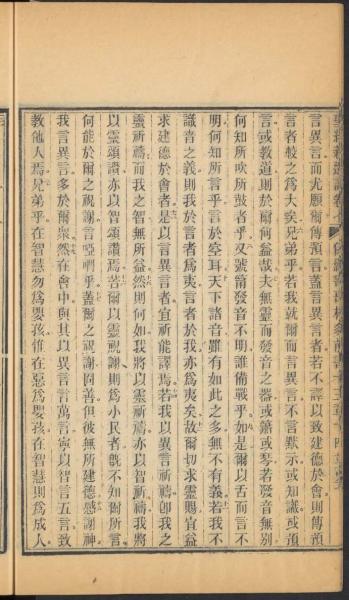 言異言而尤願爾傳預言蓋言異言者若不譯以致建德於會則傳預
言者較之為大矣兄弟乎若我就爾而言異言不言默示或知識或預
言或教道則於爾何益哉夫無靈而發音之器或簫或琴若發音無別
何知所吹所鼓者乎又號筩發音不明誰備戰乎如是爾以舌而言不
明何知所言乎言於空耳天下諸音雖有如此之多無不有義若我不
識音之義則我於言者為夷言者於我亦為夷矣故爾切求靈賜宜益
求建德於會者是以言異言者宜祈能譯焉若我以異言祈禱卽我之
靈祈禱而我之智無所益然則何如我將以靈祈禱亦以智祈禱我將
以靈頌讚亦以智頌讚焉若爾以靈祝謝則為小民者旣不知爾所言
何能於爾之祝謝言啞唎乎蓋爾之祝謝固善但彼無所建德感謝神
我言異言多於爾衆然在會中與其以異言言萬言寧以智言五言致
教他人焉兄弟乎在智慧勿為嬰孩惟在惡為嬰孩在智慧則為成人